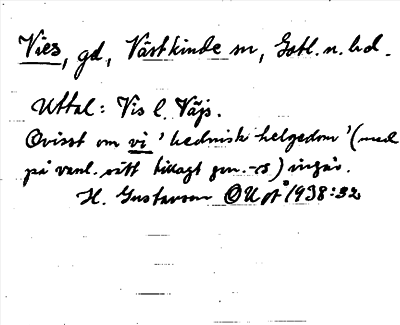 Vies, gd, Västkinde sn, Gotl. n. hd.
Uttal: Vis l. Väjs.
Ovisst om vi 'hednisk helgedom' (med
på vanl. sätt tillagt gen. -s) ingår.
H. Gustavson OUpå 1938:32